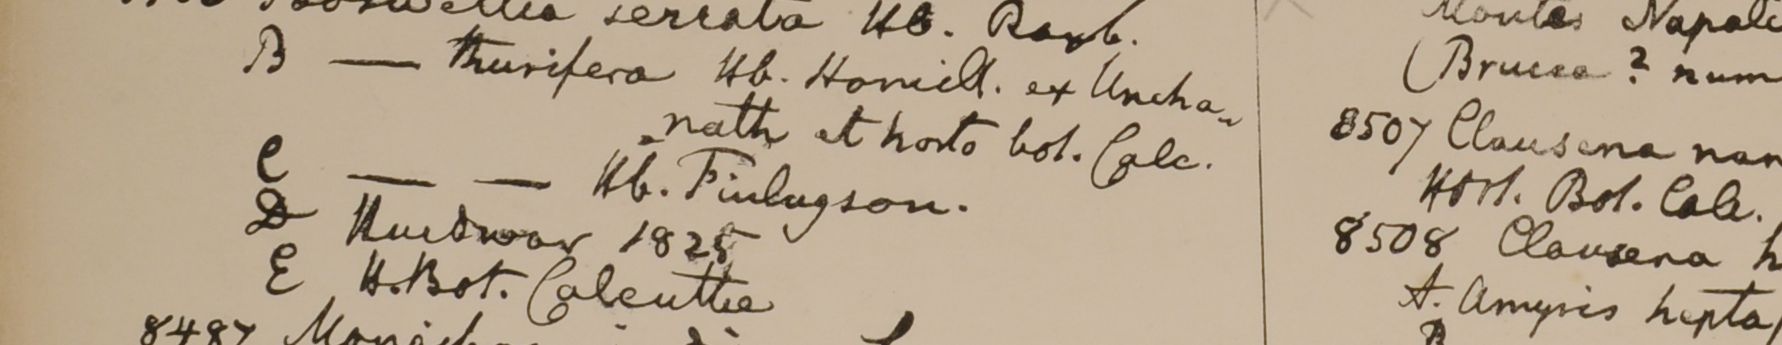 Boswellia serrata Hb. Roxb.
B — thurifera Hb. Hamilt. ex Uncha-
nath et horto bot. Calc.
C — — Hb. Finlayson.
D Hurdwar 1825
E H. Bot. Calcutta
8487
Montes Napali
(Brucea? num
8507 Clausena nan
Hort. Bot. Calc.
8508 Clausena h
A. Amyris hepta
B